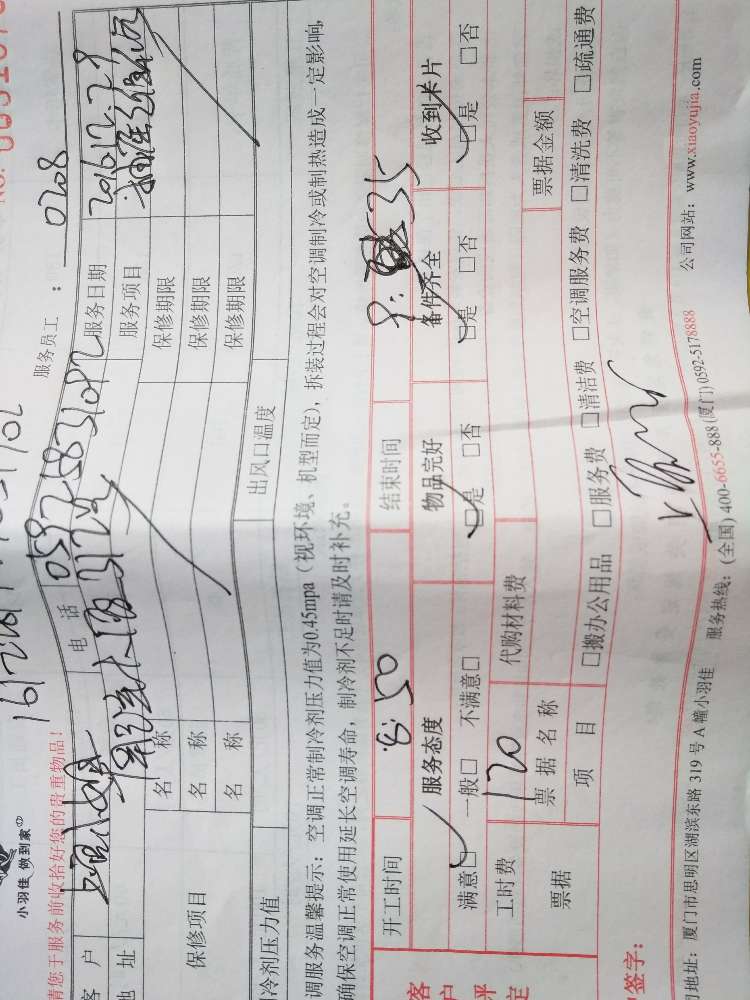 小羽佳 做到家
服务员工： 0208
请您于服务前收拾好您的贵重物品！
客 户
电 话 0592 5831082
服务日期 2016.12.29
地 址
服务项目
保修项目
名 称
保修期限
名 称
保修期限
名 称
保修期限
冷剂压力值
出风口温度
调服务温馨提示：空调正常制冷剂压力值为0.45mpa（视环境、机型而定），拆装过程会对空调制冷或制热造成一定影响，
确保空调正常使用延长空调寿命，制冷剂不足时请及时补充。
开工时间 8:50 结束时间 9: 35
服务态度 物品完好 备件齐全 收到米片
满意□ 一般□ 不满意□ □是 □否 □是 □否 □是 □否
工时费 120 代购材料费
票据 票据名称 票据金额
项 目 □搬办公用品 □服务费 □清洁费 □空调服务费 □清洗费 □疏通费
客户评定
签字：
地址：厦门市思明区湖滨东路 319 号 A 幢小羽佳 服务热线：(全国) 400-6655-888 (厦门) 0592-5178888 公司网站：www.xiaoyujia.com